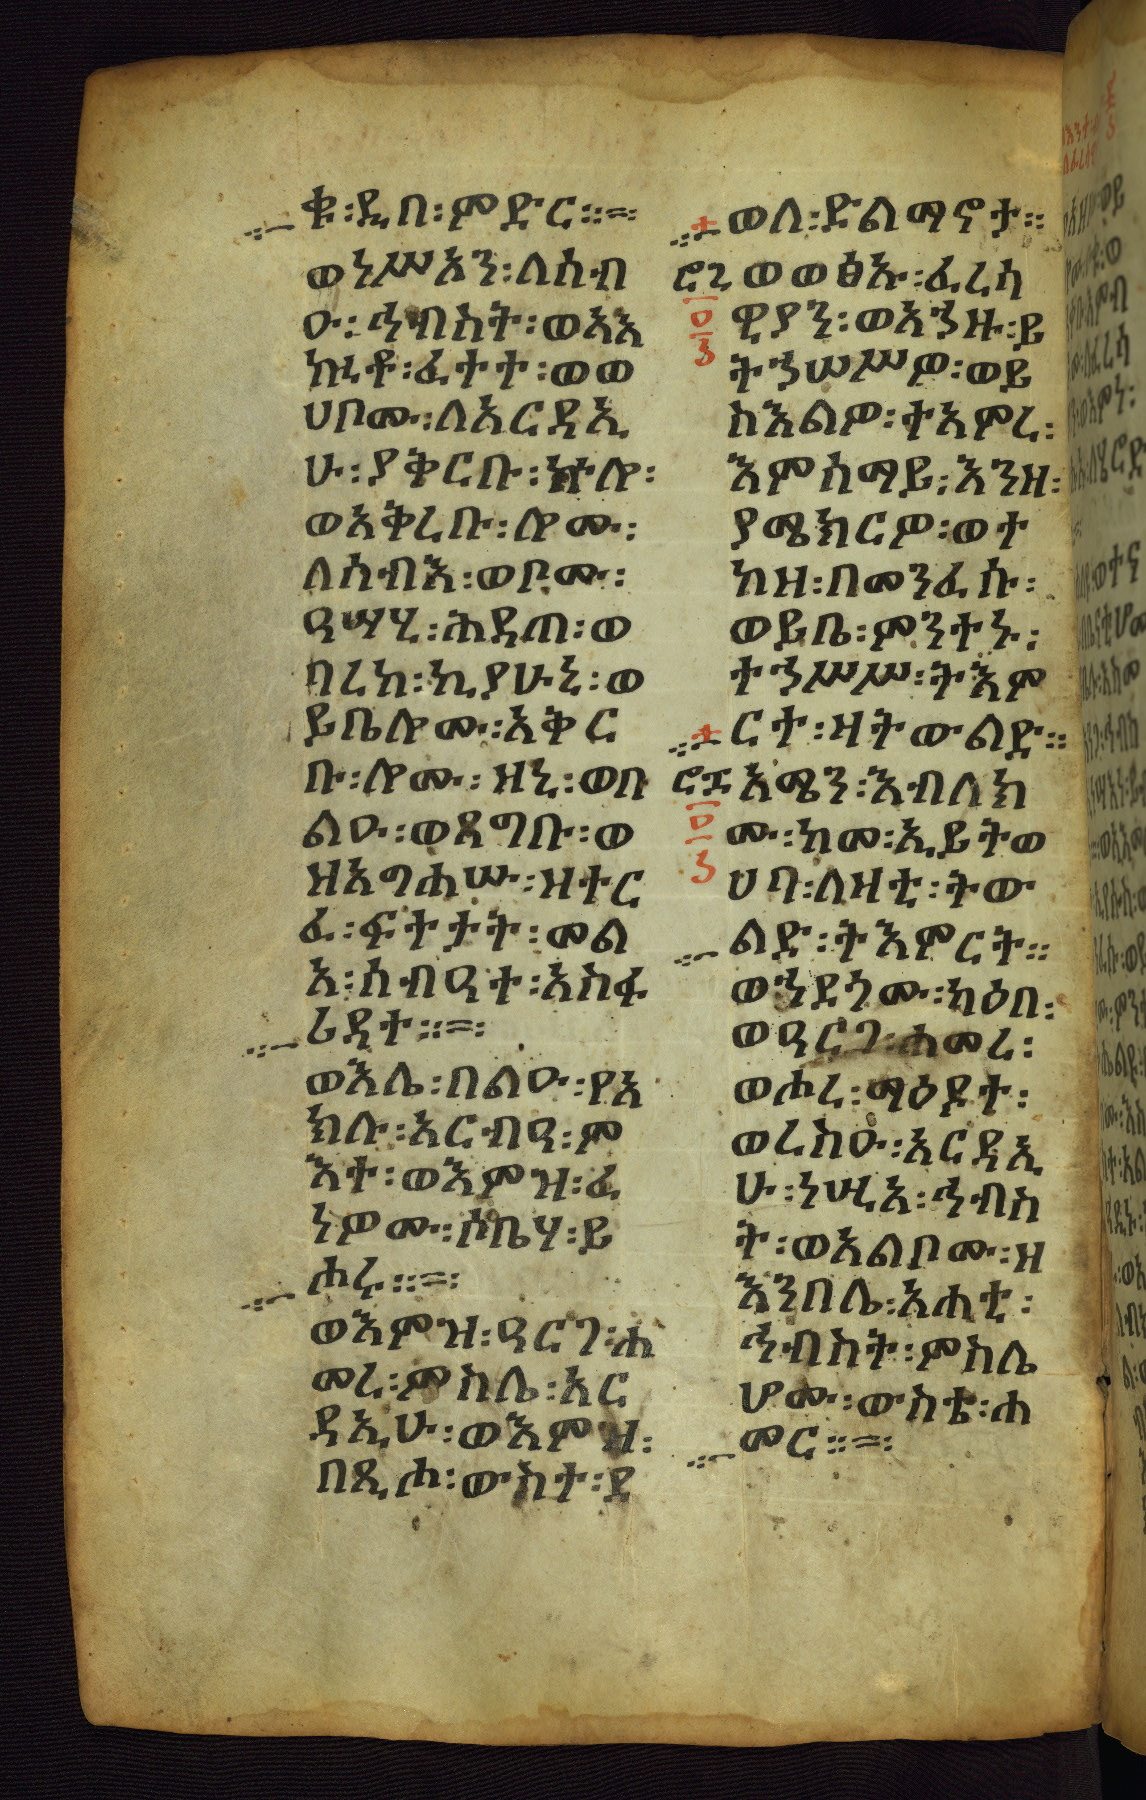 ቁ፡ዲበ፡ምድር።=፡
ወነሥአን፡ለሰብ
ዑ፡ኅብስት፡ወአእ
ኩቶ፡ፈተተ፡ወወ
ሀቦሙ፡ለአርዳኢ
ሁ፡ያቅርቡ፡ኵሎ፡
ወአቅረቡ፡ሎሙ፡
ለሰብእ፡ወቦሙ፡
ዓሣሂ፡ሕዳጠ፡ወ
ባረከ፡ኪያሁኒ፡ወ
ይቤሎሙ፡አቅር
ቡ፡ሎሙ፡ዝኒ፡ወበ
ልዑ፡ወጸግቡ፡ወ
ዘአግሐሡ፡ዝተር
ፈ፡ፍተታት፡መል
አ፡ሰብዓተ፡አስፋ
ሬዳተ።=፡
ወእለ፡በልዑ፡የአ
ክሉ፡አርብዓ፡ም
እት፡ወእምዝ፡ፈ
ነዎሙ፡ሶቤሃ፡ይ
ሐሩ።=፡
ወእምዝ፡ዓርገ፡ሐ
መረ፡ምስለ፡አር
ዳኢሁ፡ወእምዝ፡
በጺሐ፡ውስተ፡ደ
ወለ፡ድልማኖታ።
ወወፅኡ፡ፈረሳ
ዊያን፡ወአኀዙ፡ይ
ትኀሠሥዎ፡ወይ
ስእልዎ፡ተአምረ፡
እምሰማይ፡እንዘ፡
ያሜክርዎ፡ወተ
ከዘ፡በመንፈሱ፡
ወይቤ፡ምንተኑ፡
ተኀሥሥ፡ትእም
ርተ፡ዛትውልድ።
አሜን፡እብለክ
ሙ፡ከመ፡ኢይትወ
ሀባ፡ለዛቲ፡ትው
ልድ፡ትእምርት።
ወኀደጎሙ፡ካዕበ፡
ወዓርገ፡ሐመረ፡
ወሖረ፡ማዕዶተ፡
ወረስዑ፡አርዳኢ
ሁ፡ነሢአ፡ኅብስ
ት፡ወአልቦሙ፡ዘ
እንበለ፡አሐቲ፡
ኅብስት፡ምስሌ
ሆሙ፡ውስቴ፡ሐ
መር።=፡